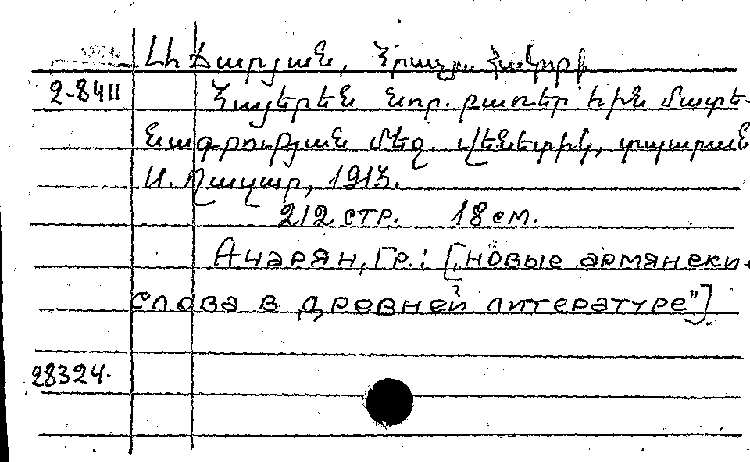 Աճարյան, Հրաչյա Հակոբի
2-8411 Հայերեն նոր. բառեր հին մատե-
նագրության մեջ. Վենետիկ, տպարան
Ս. Ղազար, 1913.
212 стр. 18 см.
Ачарян, Гр.: ["новые армянски
слова в древней литературе"]
28324.